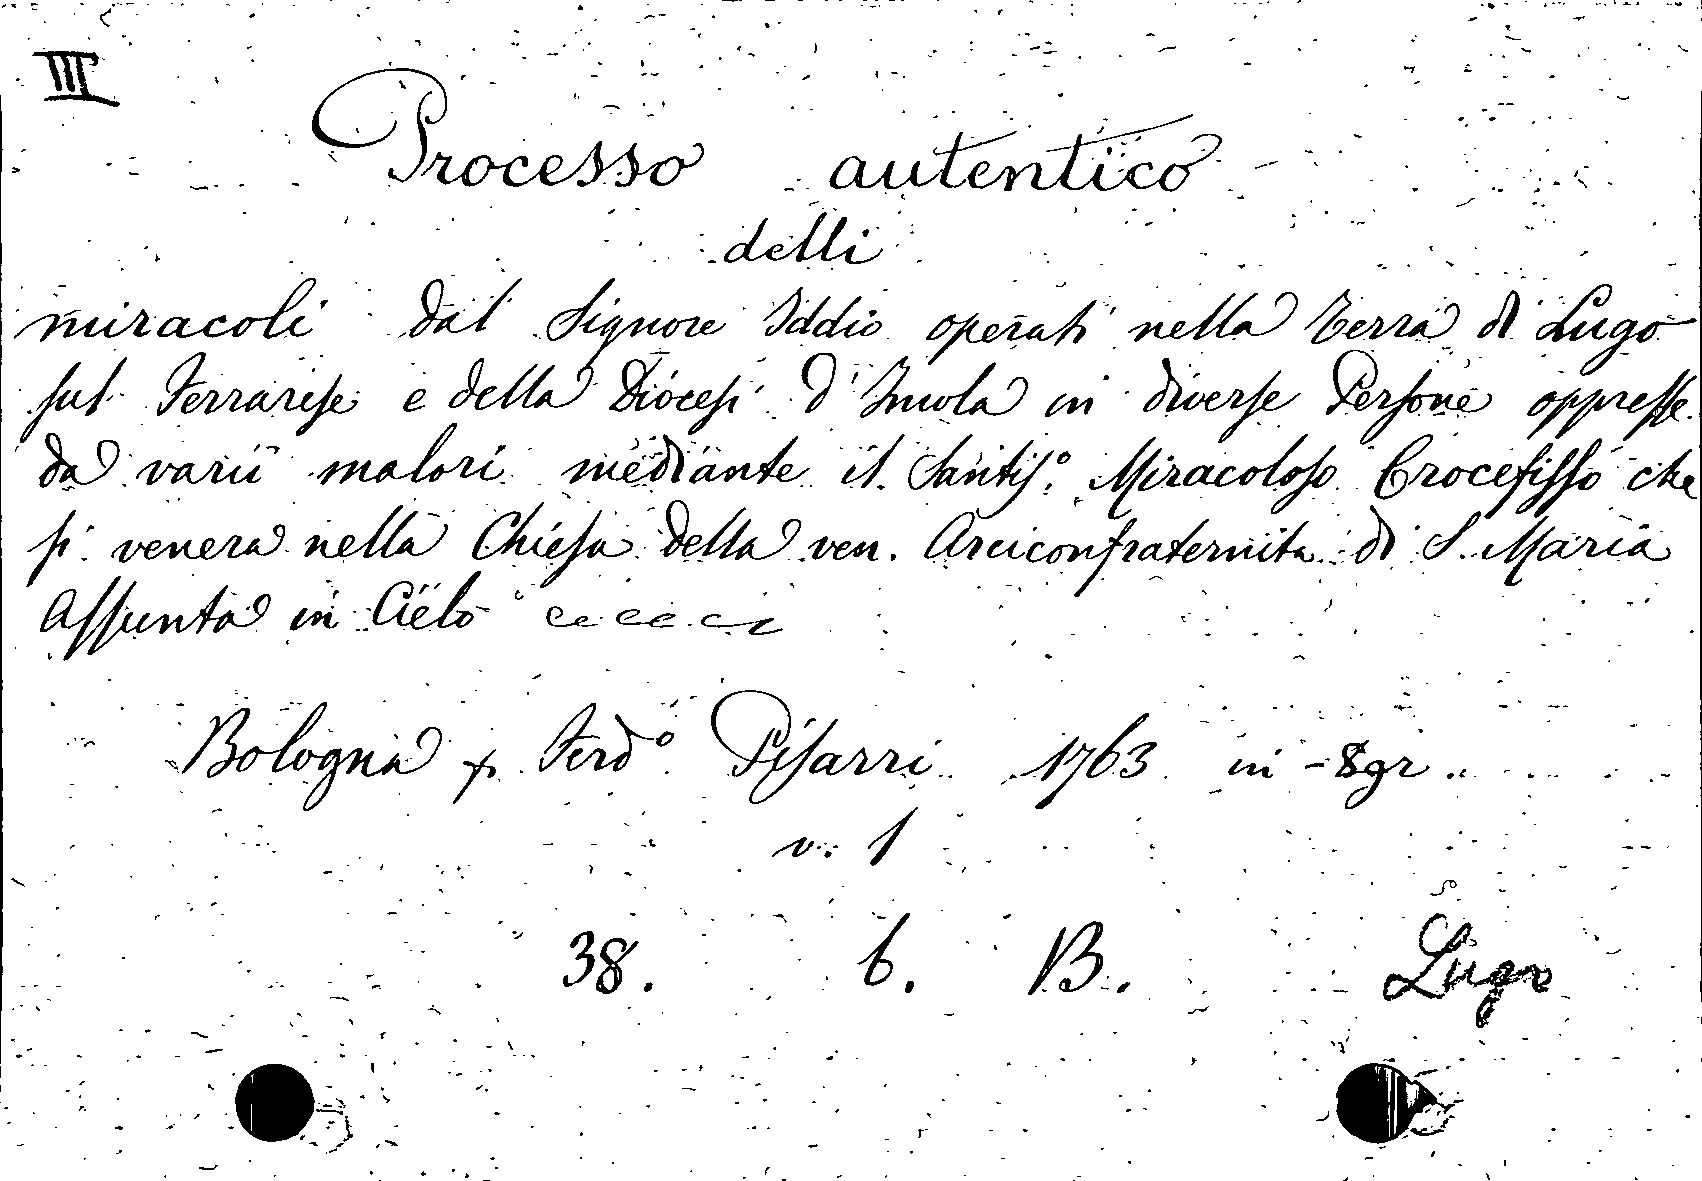 III
Processo autentico
delli
miracoli dal Signore Iddio operati nella Terra di Lugo
sul Ferrarese e della Diocesi d'Imola in diverse Persone oppresse
da varii malori mediante il Santis.º Miracoloso Crocefisso che
si venera nella Chiesa della ven. Arciconfraternita di S. Maria
Assunta in Cielo
Bologna p Ferdº Pisarri 1763 in-8gr.
v. 1
38. b. B. Lugo